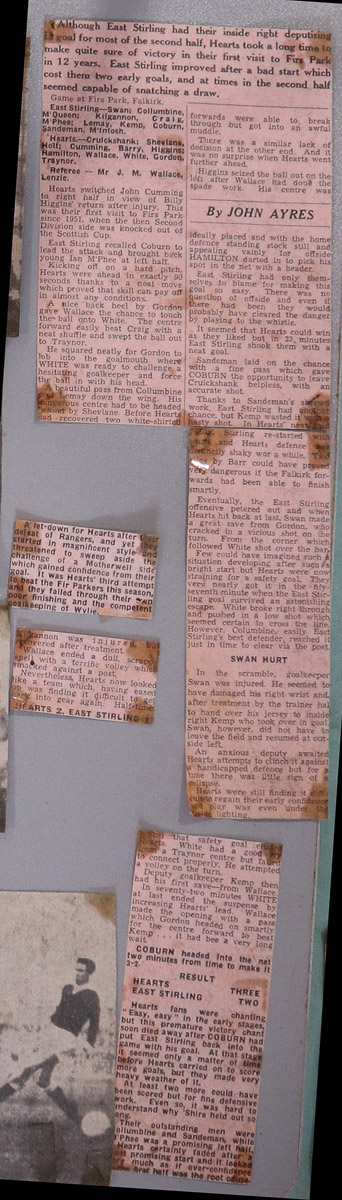 Although East Stirling had their inside right deputising
goal for most of the second half, Hearts took a long time to
make quite sure of victory in their first visit to Firs Park
in 12 years. East Stirling improved after a bad start which
cost them two early goals, and at times in the second half
seemed capable of snatching a draw.
Game at Firs Park, Falkirk.
East Stirling—Swan; Collumbine,
M'Queen; Kilgannon, Craig,
M'Phee; Lemay, Kemp, Coburn,
Sandeman, M'Intosh.
Hearts—Cruickshank; Shevlane,
Holt; Cumming, Barry, Higgins;
Hamilton, Wallace, White, Gordon,
Traynor.
Referee — Mr J. M. Wallace,
Lenzie.
Hearts switched John Cumming
to right half in view of Billy
Higgins' return after injury. This
was their first visit to Firs Park
since 1951, when the then Second
Division side was knocked out of
the Scottish Cup.
East Stirling recalled Coburn to
lead the attack and brought back
young Ian M'Phee at left half.
Kicking off on a hard pitch,
Hearts were ahead in exactly 90
seconds thanks to a neat move
which proved that skill can pay off
in almost any conditions.
A nice back heel by Gordon
gave Wallace the chance to touch
the ball onto White. The centre
forward easily beat Craig with a
neat shuffle and swept the ball out
to Traynor.
He squared neatly for Gordon to
lob into the goalmouth where
WHITE was ready to challenge a
hesitating goalkeeper and force
the ball in with his head.
beautiful pass from Collumbine
Lemay down the wing. His
dangerous centre had to be headed
by Shevlane Before Hearts
had recovered two white-shirted
forwards were able to break
through but got into an awful
muddle.
There was a similar lack of
decision at the other end. And it
was no surprise when Hearts went
further ahead.
Higgins seized the ball out on the
left after Wallace had done the
spade work. His centre was
By JOHN AYRES
ideally placed and with the home
defence standing stock still and
appealing vainly for offside
HAMILTON darted in to pick his
spot in the net with a header.
East Stirling had only them-
selves to blame for making this
goal so easy. There was no
question of offside and even if
there had been they would
probably have cleared the danger
by playing to the whistle.
It seemed that Hearts could win
as they liked but in 23 minutes
East Stirling shook them with a
neat goal.
Sandeman laid on the chance
with a fine pass which gave
COBURN the opportunity to leave
Cruickshank helpless, with an
accurate shot.
Thanks to Sandeman's
work, East Stirling had another
chance, but Kemp wasted it
hasty shot. In Hearts' next
Stirling re-started with
and Hearts defence
distinctly shaky wor a while. The
by Barr could have proved
very dangerous if the Falkirk for-
wards had been able to finish
smartly.
Eventually, the East Stirling
offensive petered out and when
Hearts hit back at last, Swan made
a great save from Gordon, who
cracked in a vicious shot on the
turn. From the corner which
followed White shot over the bar.
Few could have imagined such a
situation developing after such a
bright start but Hearts were now
straining for a safety goal. They
very nearly got it in the fifty-
seventh minute when the East Stir-
ling goal survived an astonishing
escape. White broke right through
and pushed in a low shot which
seemed certain to cross the line.
However, Columbine, easily East
Stirling's best defender, reached it
just in time to clear via the post.
SWAN HURT
In the scramble, goalkeeper
Swan was injured. He seemed to
have damaged his right wrist and
after treatment by the trainer had
to hand over his jersey to inside
right Kemp who took over in goal.
Swan, however, did not have to
leave the field and resumed at out-
side left.
An anxious deputy awaited
Hearts attempts to clinch it against
a handicapped defence but for a
time there was little sign of a
collapse.
Hearts were still finding it diffi-
cult to regain their early confidence
play was even under
lighting.
A let-down for Hearts after their
defeat of Rangers, and yet they
started in magnificent style and
threatened to sweep aside the
challenge of a Motherwell side
which gained confidence from their
goal. It was Hearts' third attempt
to beat the Fir Parkers this season,
and they failed through their own
poor finishing and the competent
goalkeeping of Wylie.
was injured, but
recovered after treatment.
Wallace ended a dull, scrappy
spell with a terrific volley that
smacked against a post.
Nevertheless, Hearts now looked
like a team which, having eased
up was finding it difficult to get
back into gear again. Half-time:—
HEARTS 2, EAST STIRLING 1
that safety goal
Hearts. White had a good
a Traynor centre but failed
to connect properly. He attempted
a volley on the turn.
Deputy goalkeeper Kemp then
had his first save—from Wallace.
In seventy-two minutes WHITE
at last ended the suspense by
increasing Hearts' lead. Wallace
made the opening with a pass
which Gordon headed on smartly
for the centre forward to beat
Kemp . . . it had bee a very long
wait.
COBURN headed into the net
two minutes from time to make it
3-2.
RESULT
HEARTS THREE
EAST STIRLING TWO
Hearts fans were chanting
"Easy, easy" in the early stages,
but this premature victory chant
soon died away after COBURN had
put East Stirling back into the
game with his goal. At that stage
it seemed only a matter of time
before Hearts carried on to score
more goals, but they made very
heavy weather of it.
At least two more could have
been scored but for fine defensive
work. Even so, it was hard to
understand why 'Shire held out so
long.
Their outstanding men were
Collumbine and Sandeman, while
M'Phee was a promising left half.
Hearts certainly faded after a
promising start and it looked
very much as if over-confidence
first half was the root cause.